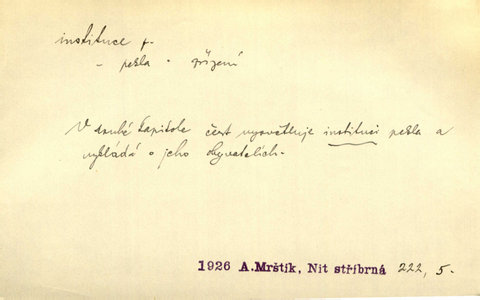 instituce f.
– pekla • zřízení
V druhé kapitole čert vysvětluje instituci pekla a
vykládá o jeho obyvatelích.
1926 A.Mrštík, Nit stříbrná 222, 5.